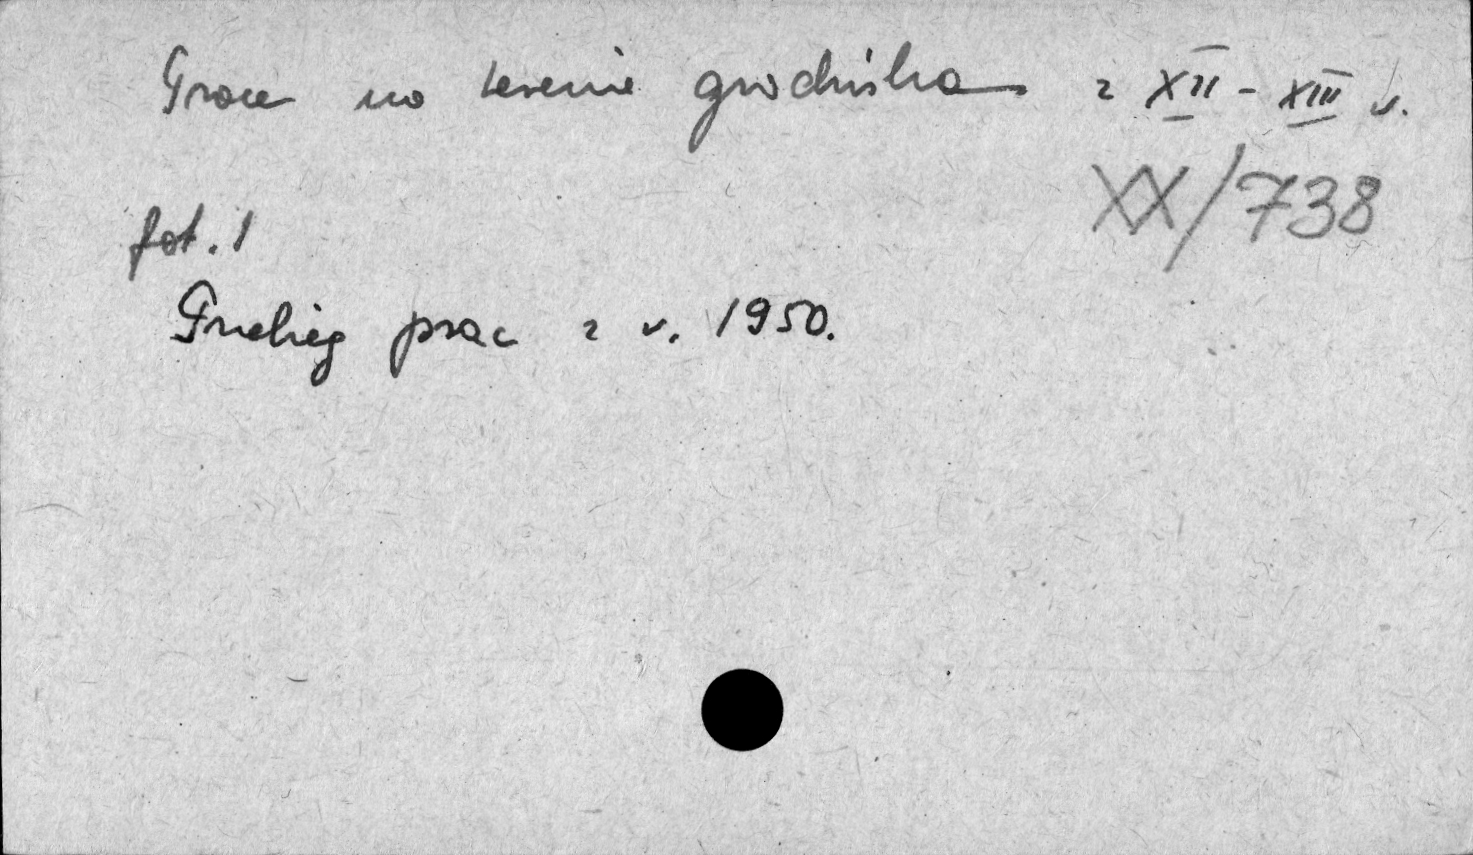 Prace na terenie grodziska z XII - XIII w.
XX/738
fot. 1
Przebieg prac z r. 1950.